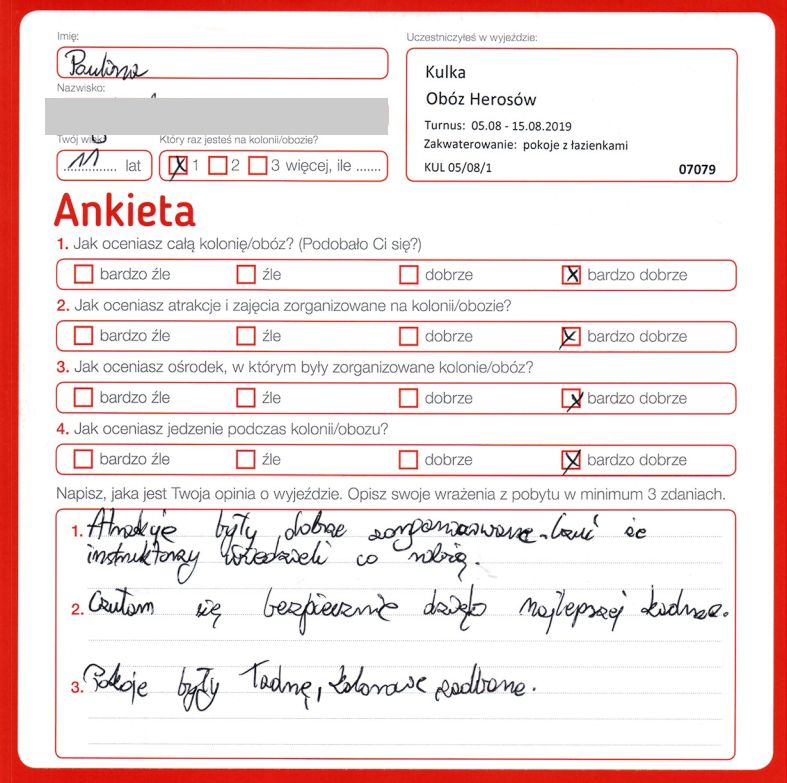 Imię:
Paulina
Uczestniczyłeś w wyjeździe:
Kulka
Obóz Herosów
Turnus: 05.08 - 15.08.2019
Zakwaterowanie: pokoje z łazienkami
KUL 05/08/1 07079
Nazwisko:
Twój wiek:
11 lat
Który raz jesteś na kolonii/obozie?
X 1 2 3 więcej, ile .......
Ankieta
1. Jak oceniasz całą kolonię/obóz? (Podobało Ci się?)
bardzo źle źle dobrze X bardzo dobrze
2. Jak oceniasz atrakcje i zajęcia zorganizowane na kolonii/obozie?
bardzo źle źle dobrze X bardzo dobrze
3. Jak oceniasz ośrodek, w którym były zorganizowane kolonie/obóz?
bardzo źle źle dobrze X bardzo dobrze
4. Jak oceniasz jedzenie podczas kolonii/obozu?
bardzo źle źle dobrze X bardzo dobrze
Napisz, jaka jest Twoja opinia o wyjeździe. Opisz swoje wrażenia z pobytu w minimum 3 zdaniach.
1. Atrakcje były dobrze zorganizowane. Czuć że
instruktorzy wiedzieli co robią.
2. Czułam się bezpiecznie dzięki najlepszej kadrze.
3. Pokoje były ładne, kolorowe zadbane.